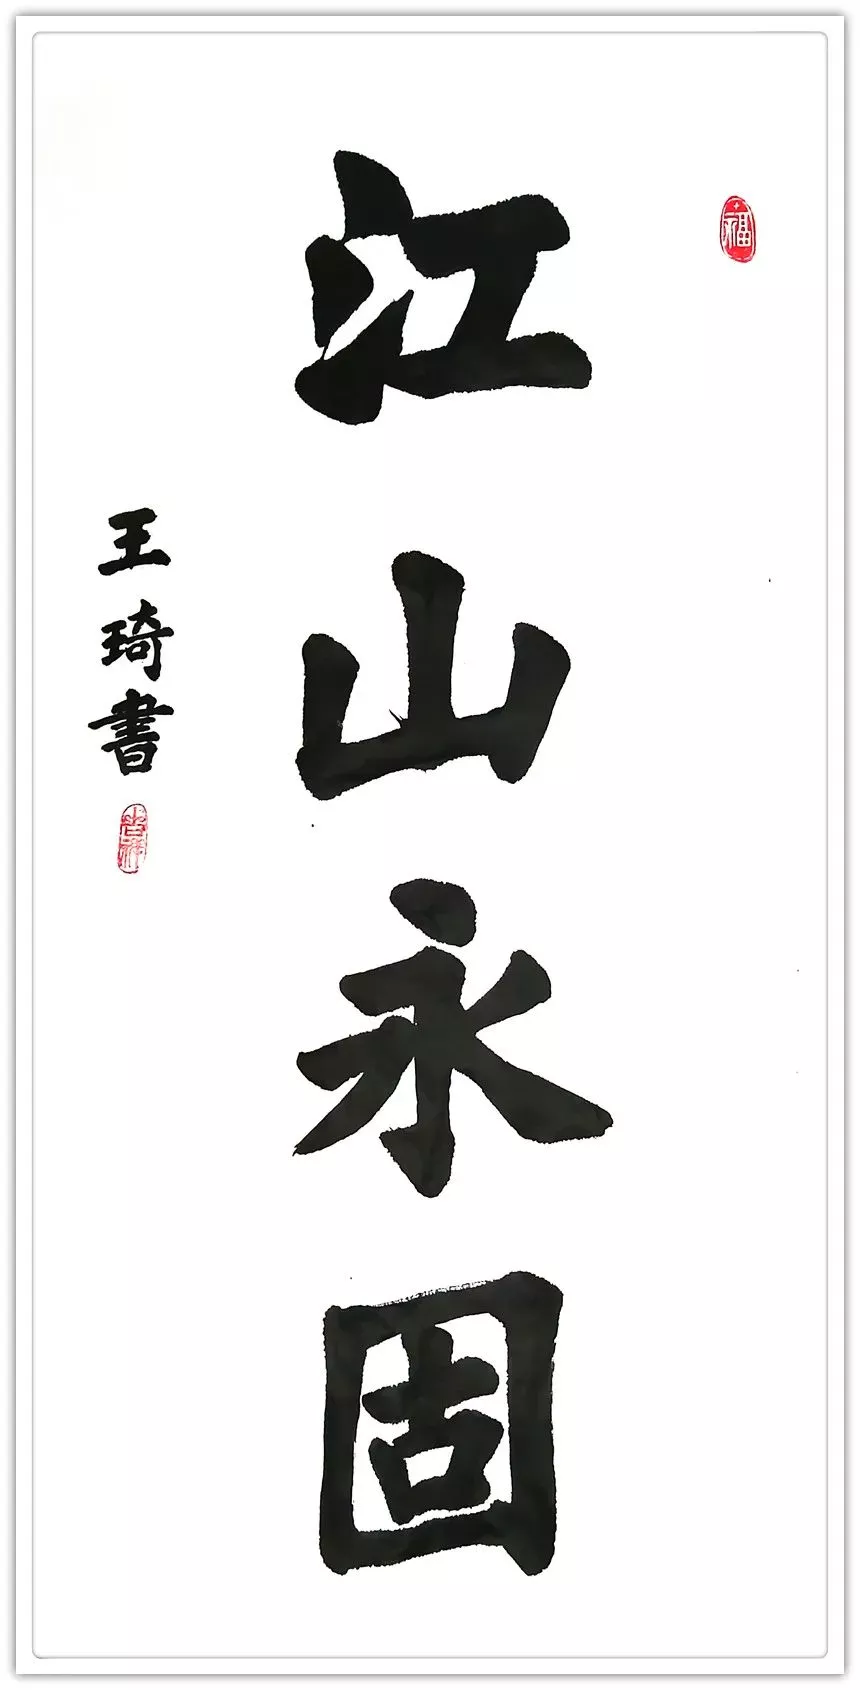 福
江山永固
王琦書